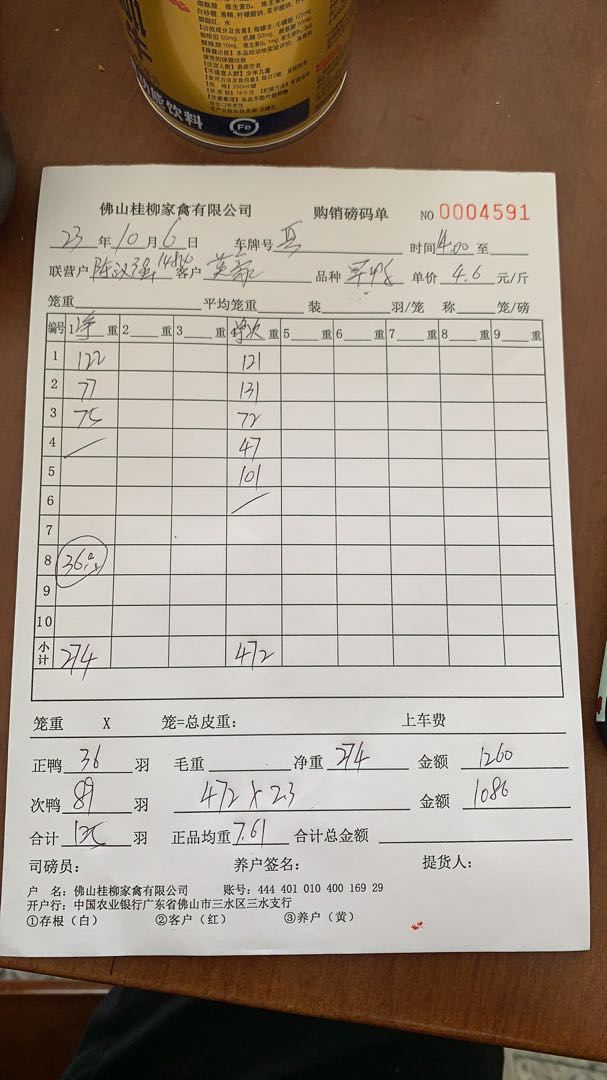 功能饮料
Fe
佛山桂柳家禽有限公司 购销磅码单 NO 0004591
23年10月6日 车牌号 时间14.00至
联营户 客户 品种 单价4.6元/斤
笼重 平均笼重 装 羽/笼 称 笼/磅
编号 1净重 2 重 3 重 4净次重 5 重 6 重 7 重 8 重 9 重
1 122 121
2 77 131
3 75 72
4 47
5 101
6
7
8 36
9
10
小计 274 472
笼重 X 笼=总皮重： 上车费
正鸭 36 羽 毛重 净重 274 金额 1260
次鸭 89 羽 472 x 2.3 金额 1086
合计 125 羽 正品均重 7.61 合计总金额
司磅员： 养户签名： 提货人：
户 名：佛山桂柳家禽有限公司 账号：444 401 010 400 169 29
开户行：中国农业银行广东省佛山市三水区三水支行
①存根（白） ②客户（红） ③养户（黄）